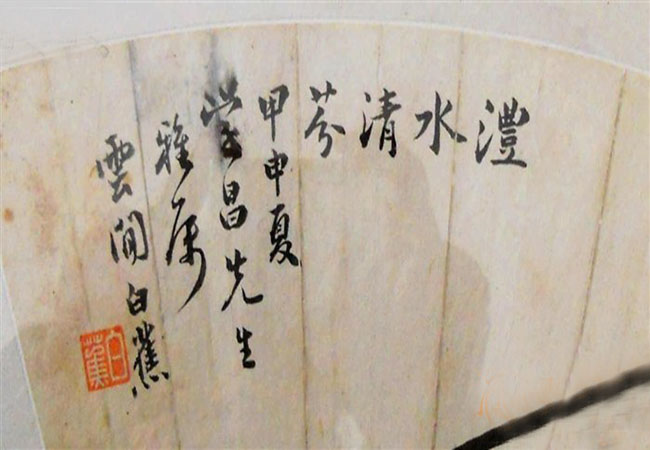 澧水清芬
甲申夏
昌先生
雅属
雲間白蕉
白蕉